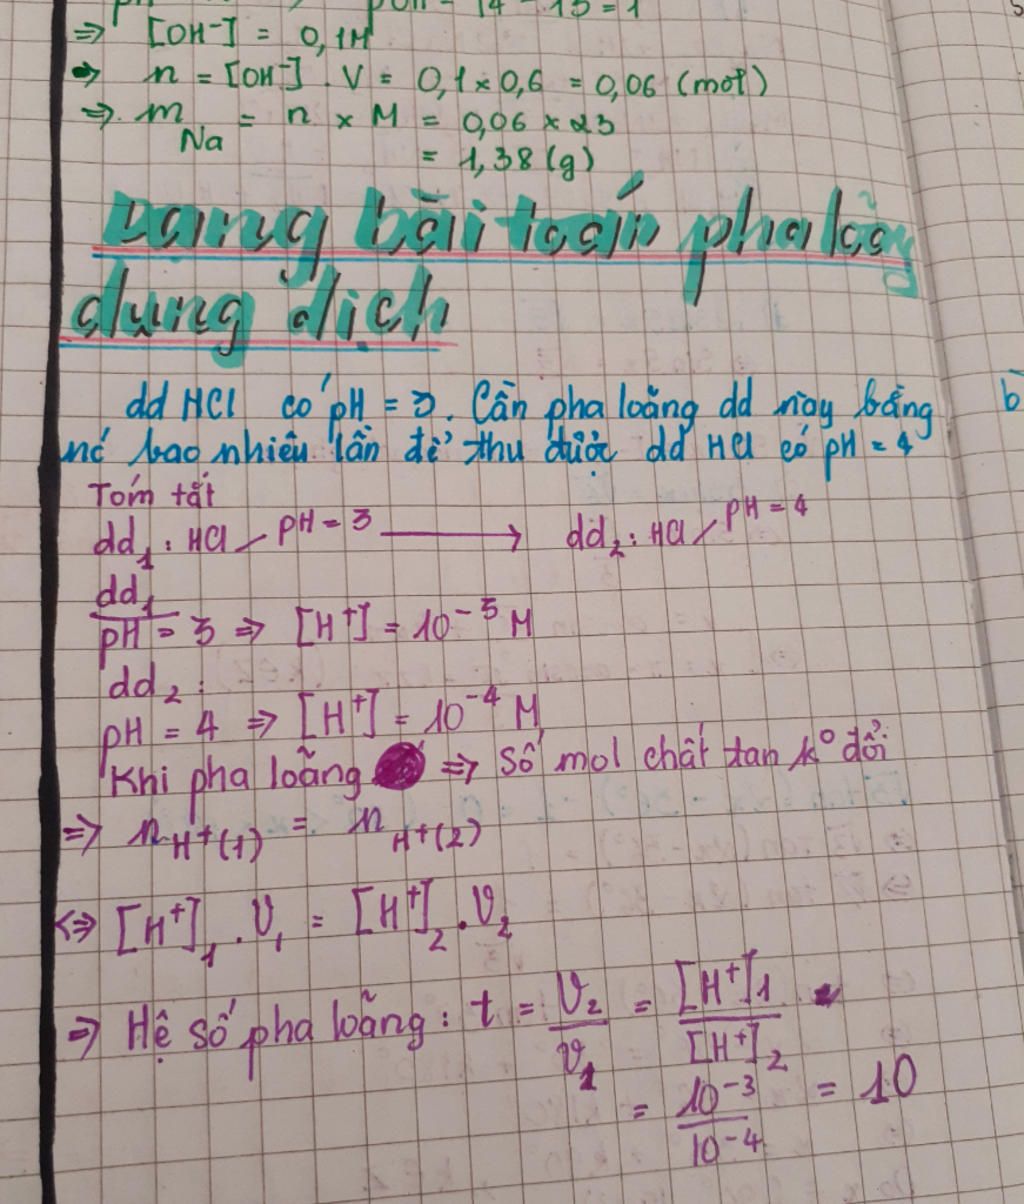 pOH = 14 - 13 = 1
=> [OH⁻] = 0,1M
=> n = [OH⁻] . V = 0,1 x 0,6 = 0,06 (mol)
=> m Na = n x M = 0,06 x 23
= 1,38 (g)
Dạng bài toán pha loãng
dung dịch
dd HCl có pH = 3. Cần pha loãng dd này bằng
nc bao nhiêu lần để thu được dd HCl có pH = 4
Tóm tắt
dd₁ : HCl / pH = 3 → dd₂ : HCl / pH = 4
dd₁
pH = 3 => [H⁺] = 10⁻³ M
dd₂ :
pH = 4 => [H⁺] = 10⁻⁴ M
Khi pha loãng => số mol chất tan k° đổi
=> n H⁺(1) = n H⁺(2)
<=> [H⁺]₁ . V₁ = [H⁺]₂ . V₂
=> Hệ số pha loãng : t = V₂/V₁ = [H⁺]₁/[H⁺]₂
= 10⁻³/10⁻⁴ = 10
b